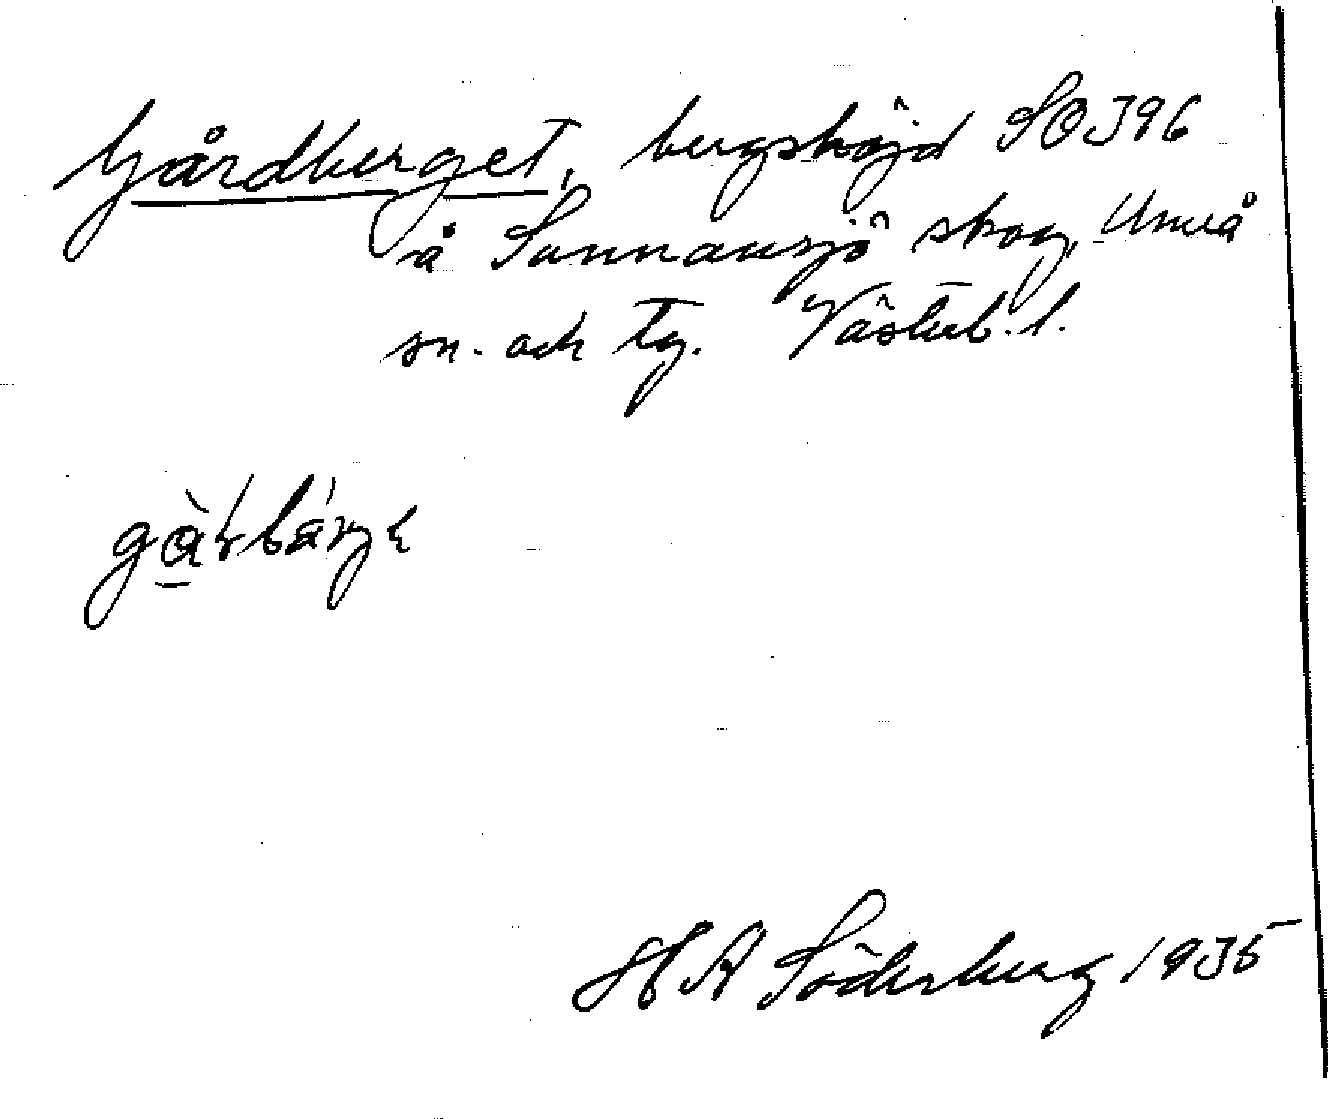 Gårdberget, bergshöjd SO 396
å Sunnansjö skog, Umeå
sn. och tg. Västerb. l.
H A Söderberg 1935